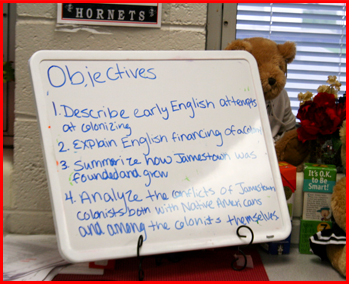 HORNETS
Objectives
1. Describe early English attempts
at colonizing
2. Explain English financing of a colony
3. Summarize how Jamestown was
founded and grew
4. Analyze the conflicts of Jamestown
colonists both with Native Americans
and among the colonists themselves
It's O.K.
to Be
Smart!